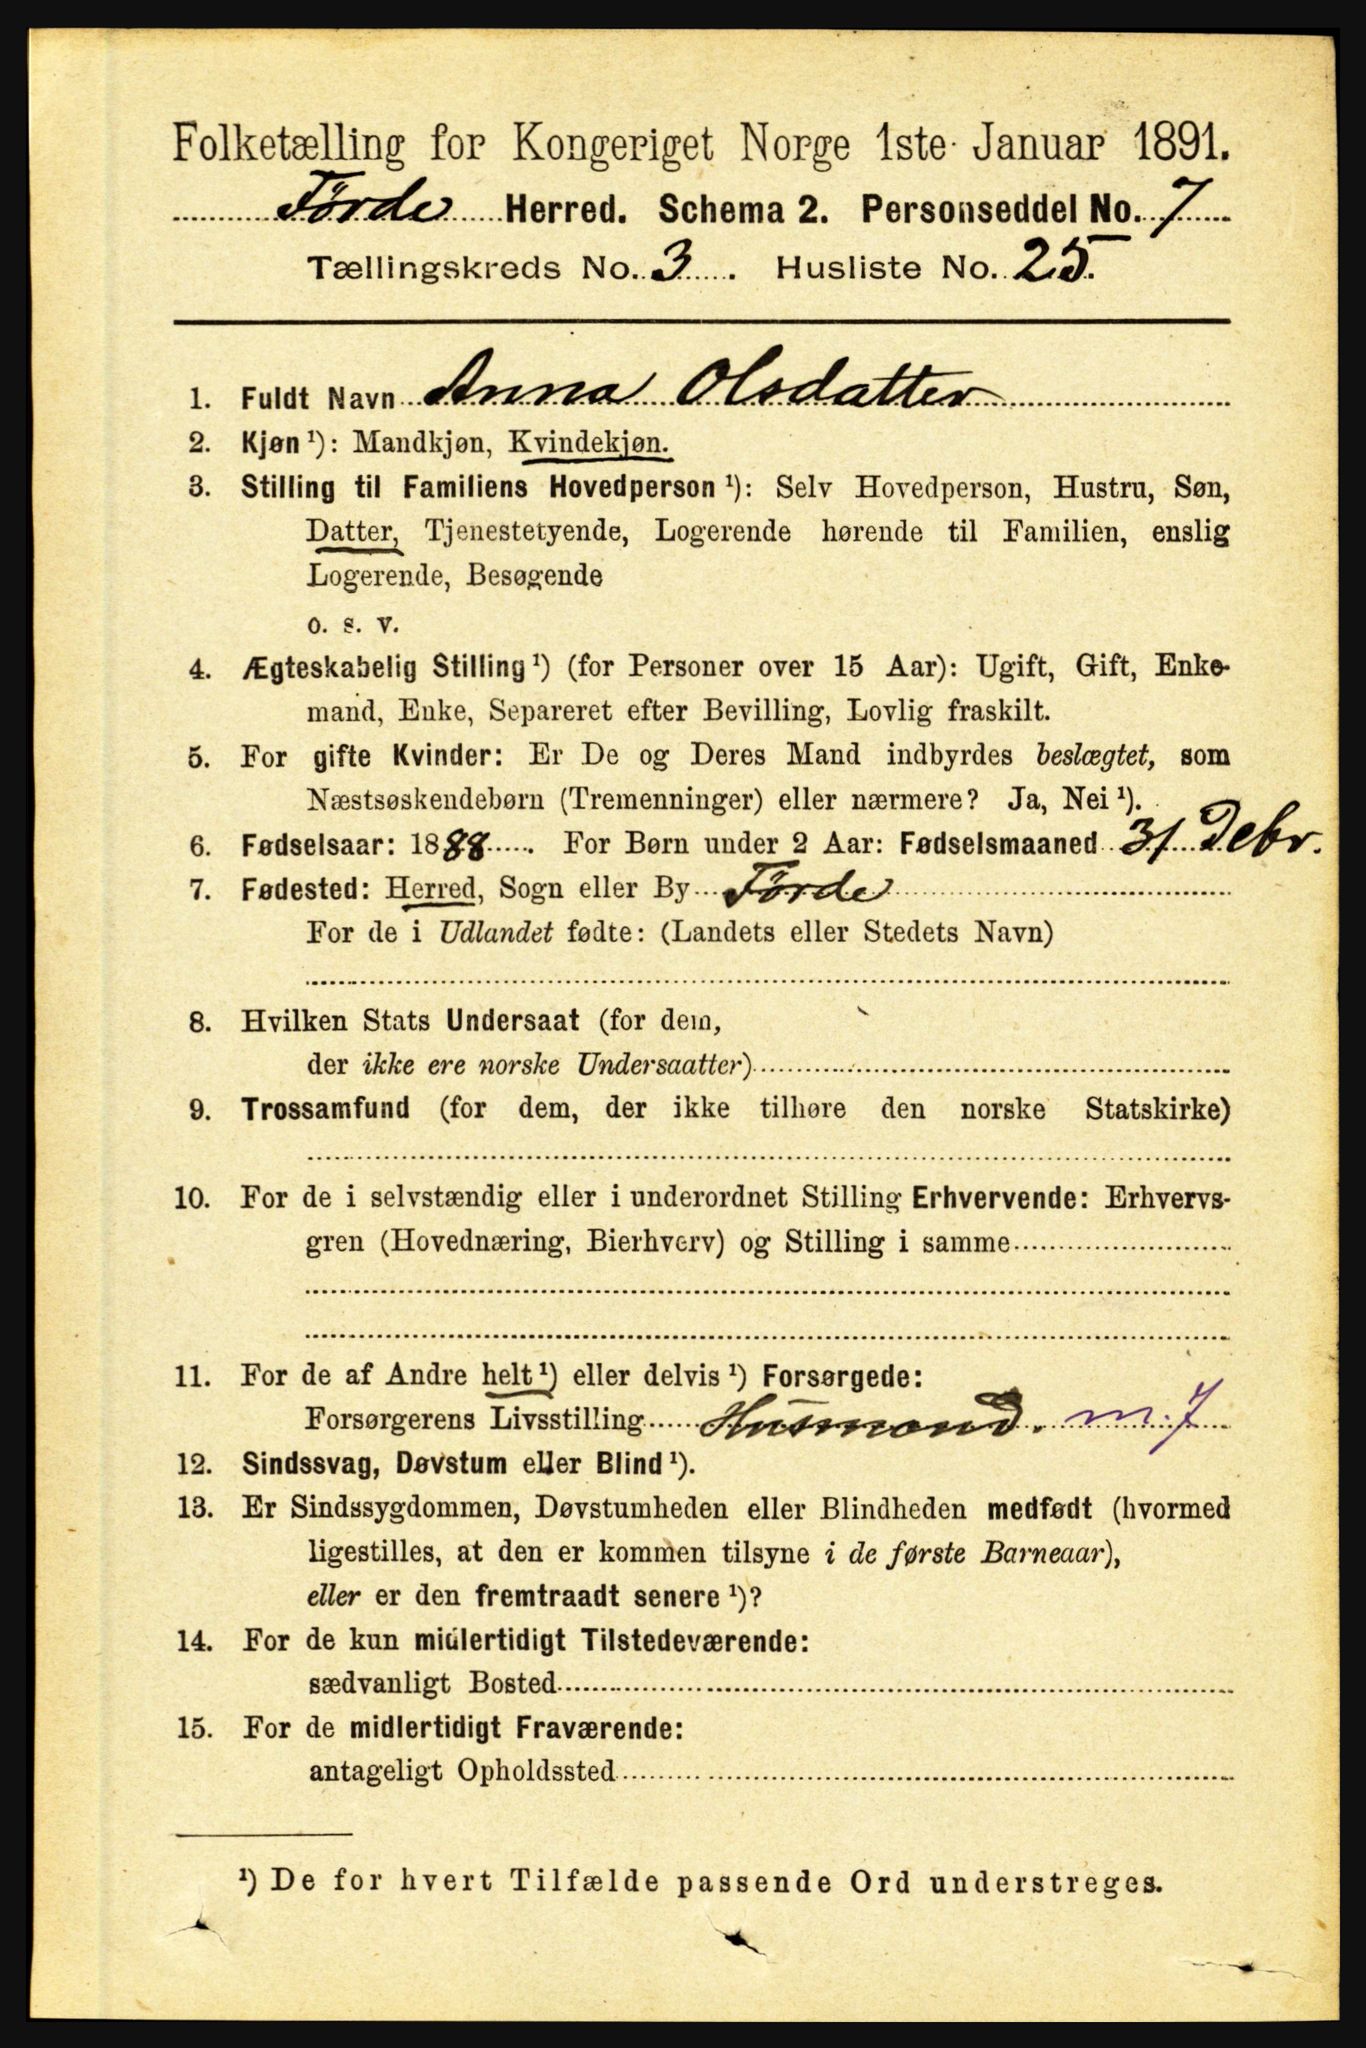 Folketælling for Kongeriget Norge 1ste Januar 1891.
Førde Herred. Schema 2. Personseddel No. 7
Tællingskreds No. 3. Husliste No. 25.
1. Fuldt Navn Anna Olsdatter
2. Kjøn ¹): Mandkjøn, Kvindekjøn.
3. Stilling til Familiens Hovedperson ¹): Selv Hovedperson, Hustru, Søn,
Datter, Tjenestetyende, Logerende hørende til Familien, enslig
Logerende, Besøgende
o. s. v.
4. Ægteskabelig Stilling ¹) (for Personer over 15 Aar): Ugift, Gift, Enke-
mand, Enke, Separeret efter Bevilling, Lovlig fraskilt.
5. For gifte Kvinder: Er De og Deres Mand indbyrdes beslægtet, som
Næstsøskendebørn (Tremenninger) eller nærmere? Ja, Nei ¹).
6. Fødselsaar: 1888. For Børn under 2 Aar: Fødselsmaaned 31 Debr.
7. Fødested: Herred, Sogn eller By Førde
For de i Udlandet fødte: (Landets eller Stedets Navn)
8. Hvilken Stats Undersaat (for dem,
der ikke ere norske Undersaatter)
9. Trossamfund (for dem, der ikke tilhøre den norske Statskirke)
10. For de i selvstændig eller i underordnet Stilling Erhvervende: Erhvervs-
gren (Hovednæring, Bierhverv) og Stilling i samme
11. For de af Andre helt ¹) eller delvis ¹) Forsørgede:
Forsørgerens Livsstilling Husmand. m. 7
12. Sindssvag, Døvstum eller Blind ¹).
13. Er Sindssygdommen, Døvstumheden eller Blindheden medfødt (hvormed
ligestilles, at den er kommen tilsyne i de første Barneaar),
eller er den fremtraadt senere ¹)?
14. For de kun midlertidigt Tilstedeværende:
sædvanligt Bosted
15. For de midlertidigt Fraværende:
antageligt Opholdssted
¹) De for hvert Tilfælde passende Ord understreges.